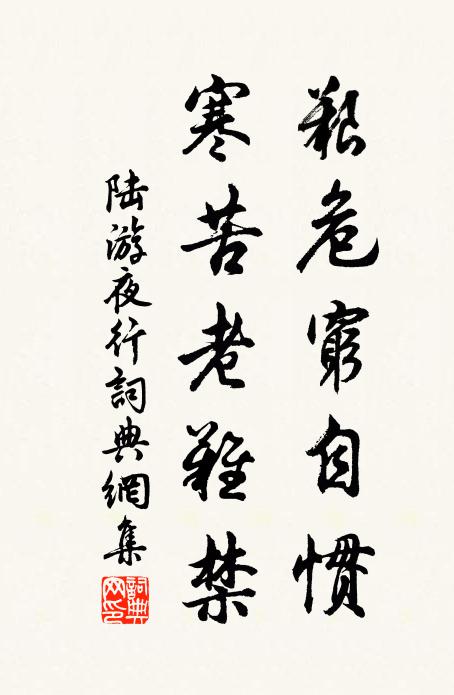 艱危窮自慣
寒苦老難禁
陆游夜行詞典網集
詞典網印